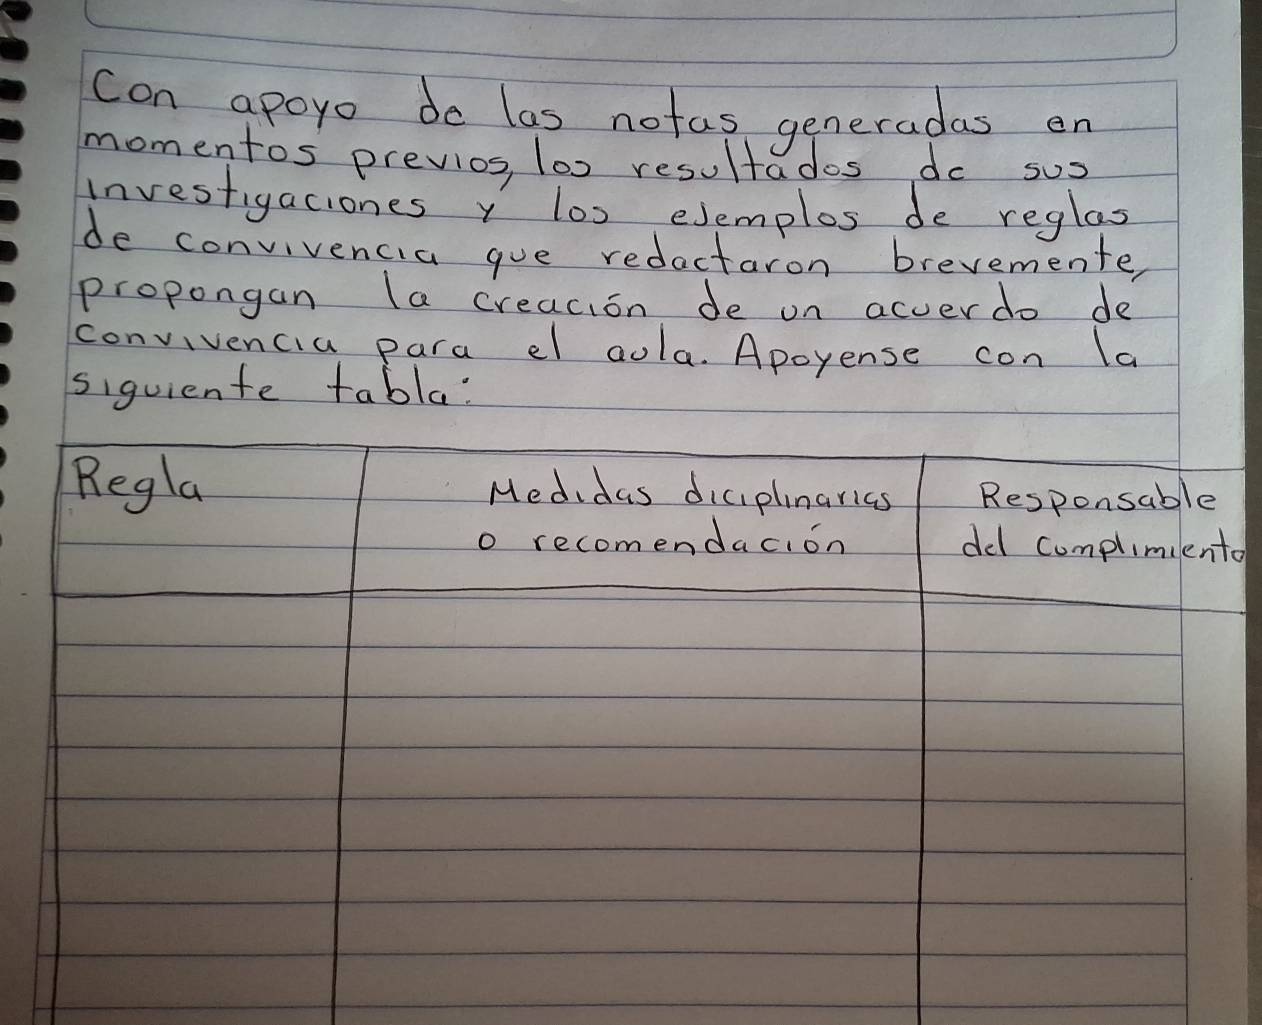 Con apoyo de las notas generadas en
momentos previos, los resultados de sus
investigaciones y los ejemplos de reglas
de convivencia que redactaron brevemente,
propongan la creación de un acuerdo de
convivencia para el aula. Apoyense con la
siguiente tabla:
Regla
Medidas diciplinarias
o recomendación
Responsable
del complimiento